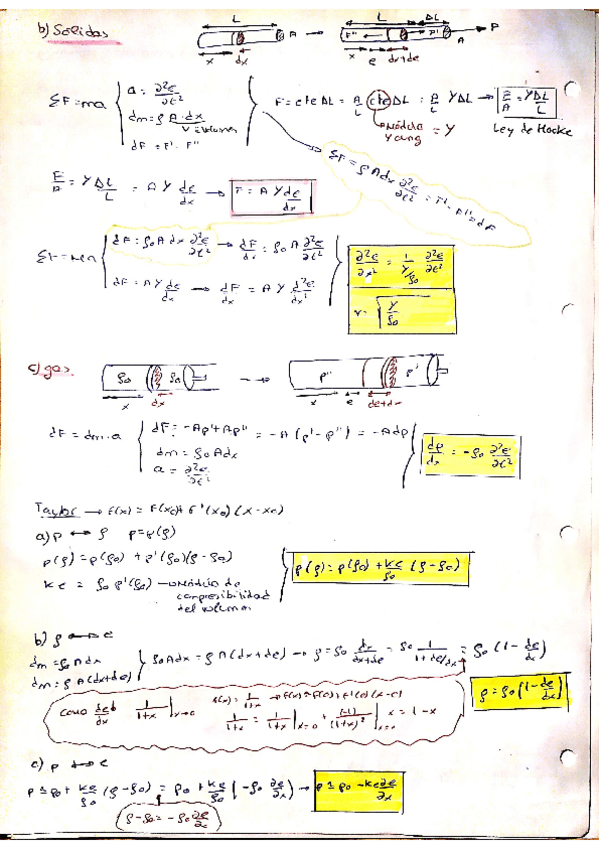 b) Sólidos
L
A
x
dx
L
ΔL
F''
F'
P
A
x
e
dx+de
ΣF=ma
a = ∂²e/∂t²
dm = ρ A·dx
V = volumen
dF = F' - F''
F = cte ΔL = A/L cte ΔL = A/L YΔL → F/A = Y ΔL/L
módulo Young = Y
Ley de Hooke
ΣF = ρ A dx ∂²e/∂t² = F' - F'' = dF
F/A = Y ΔL/L = A Y de/dx → F = A Y de/dx
ΣF = ma
dF = ρ₀ A dx ∂²e/∂t² → dF/dx = ρ₀ A ∂²e/∂t²
dF = A Y de/dx → dF/dx = A Y ∂²e/∂x²
∂²e/∂x² = 1/(Y/ρ₀) ∂²e/∂t²
v = √(Y/ρ₀)
c) gas
ρ₀
ρ₀
x
dx
p''
p'
x
e
de+dx
dF = dm·a
dF = -Ap'+Ap'' = -A(p'-p'') = -Adp
dm = ρ₀ A dx
a = ∂²e/∂t²
dp/dx = -ρ₀ ∂²e/∂t²
Taylor → f(x) = f(x₀) + f'(x₀)(x-x₀)
a) p ↔ ρ p = p(ρ)
p(ρ) = p(ρ₀) + p'(ρ₀)(ρ-ρ₀)
Kc = ρ₀ p'(ρ₀) → Módulo de
compresibilidad
del volumen
p(ρ) = p(ρ₀) + Kc/ρ₀ (ρ-ρ₀)
b) ρ ↔ e
dm = ρ₀ A dx
dm = ρ A (dx+de)
ρ₀ A dx = ρ A (dx+de) → ρ = ρ₀ dx/(dx+de) = ρ₀ 1/(1+de/dx) = ρ₀ (1 - de/dx)
como de/dx
1/(1+x) |x→0
f(x) = 1/(1+x) → f(x) = f(0) + f'(0)(x-0)
1/(1+x) = 1/(1+x) |x=0 + (-1)/(1+x)² |x=0 x = 1-x
ρ = ρ₀ (1 - de/dx)
c) p ↔ e
p = p₀ + Kc/ρ₀ (ρ-ρ₀) = p₀ + Kc/ρ₀ (-ρ₀ ∂e/∂x) → p = p₀ - Kc ∂e/∂x
ρ-ρ₀ = -ρ₀ ∂e/∂x